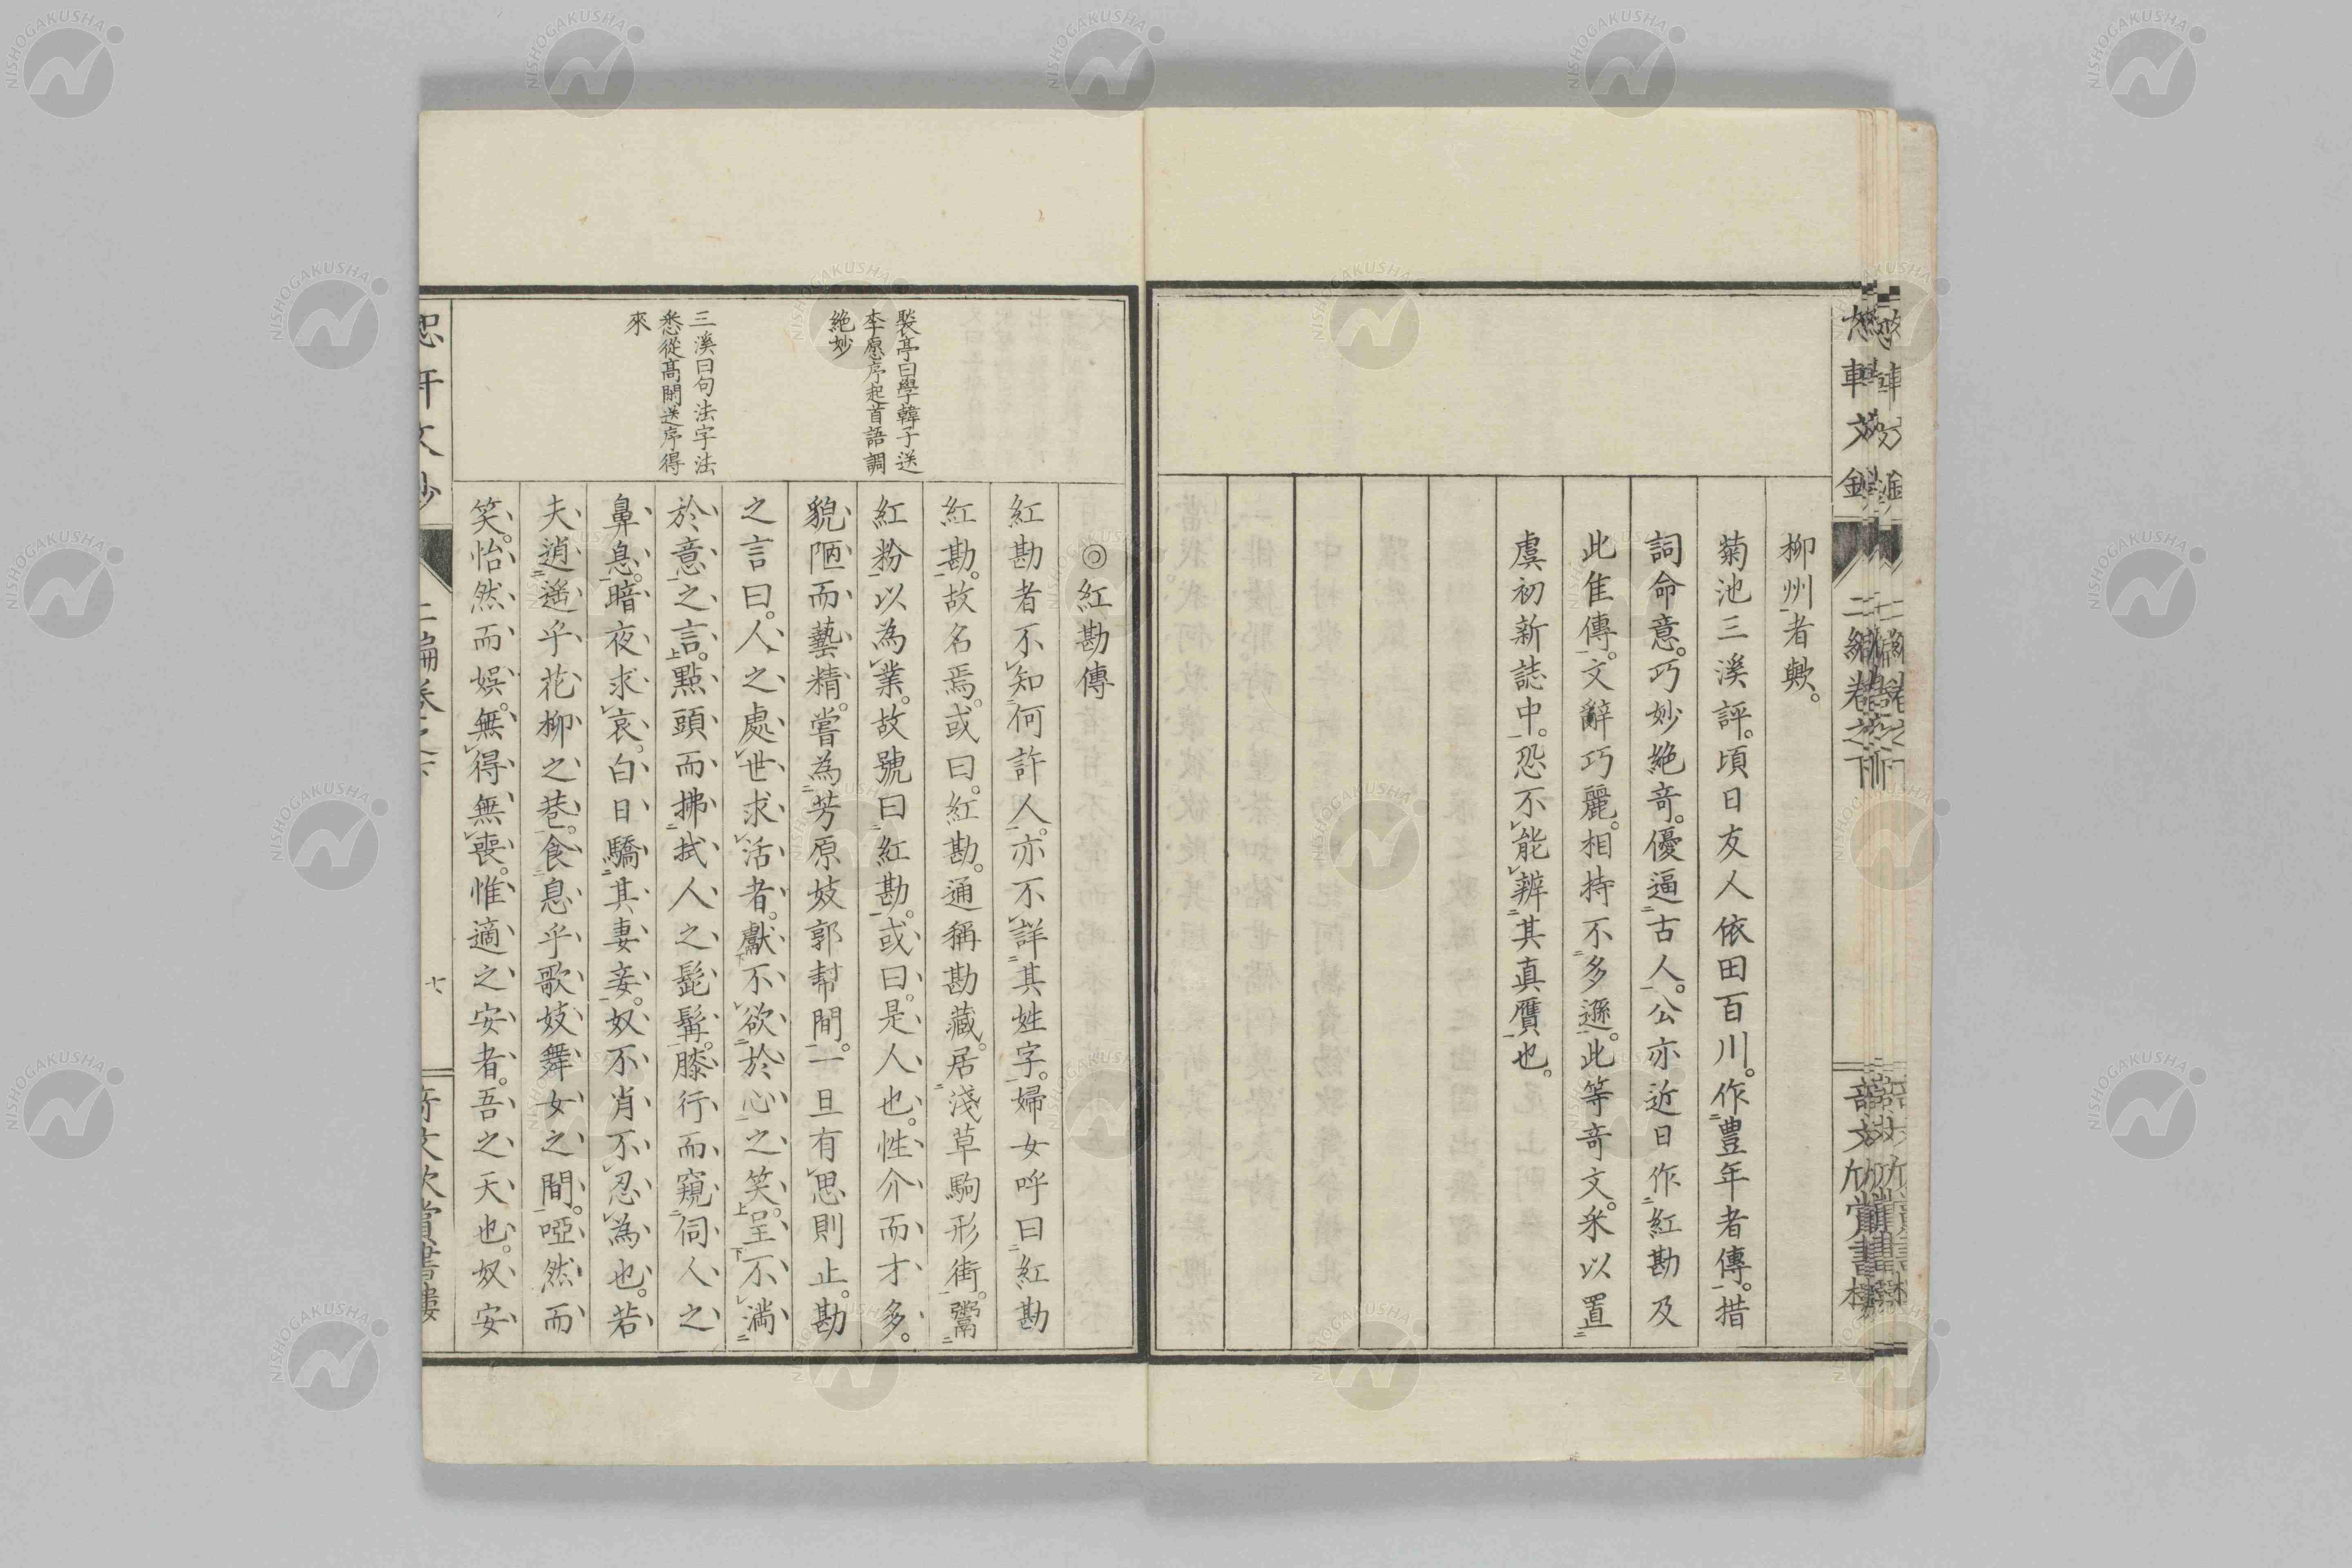 柳州者歟。
菊池三溪評。頃日友人依田百川。作豊年者傳。措
詞命意。巧妙絶奇。優逼古人。公亦近日作紅勘及
此隹傳。文辭巧麗。相持不多遜。此等奇文。釆以置
虞初新誌中。恐不能辨其真贋也。
裴亭曰學韓子送
李愿序起首語調
絶妙
三溪曰句法字法
悉從髙閑送序得
來
◎紅勘傳
紅勘者不知何許人。亦不詳其姓字。婦女呼曰紅勘
紅勘。故名焉。或曰。紅勘。通稱勘藏。居淺草駒形街。鬻
紅粉以為業。故號曰紅勘。或曰。是人也。性介而才多。
貌陋而藝精。嘗為芳原妓郭幇間。一旦有思則止。勘
之言曰。人之處世求活者。獻不欲於心之笑。呈不満
於意之言。點頭而拂拭人之髭髯。膝行而窺伺人之
鼻息。暗夜求哀。白日驕其妻妾。奴不肖不忍為也。若
夫逍遥乎花柳之巷。食息乎歌妓舞女之間。啞然而
笑。怡然而娯。無得無喪。惟適之安者。吾之天也。奴安
二編巻之下
十六
奇文欣賞書樓
NISHOGAKUSHA